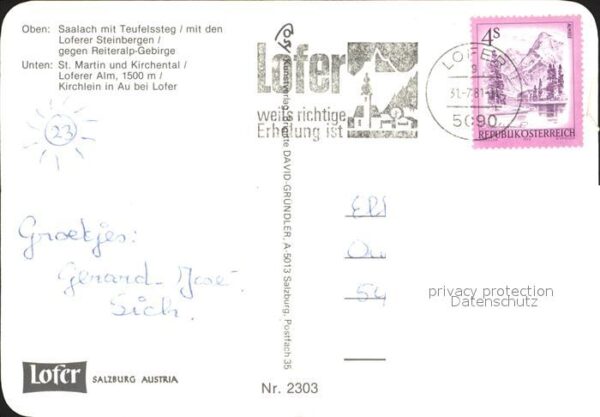 Oben: Saalach mit Teufelssteg / mit den
Loferer Steinbergen /
gegen Reiteralp-Gebirge
Unten: St. Martin und Kirchental /
Loferer Alm, 1500 m /
Kirchlein in Au bei Lofer
23
Groetjes:
Gerard - José.
Sich.
Lofer
SALZBURG AUSTRIA
Nr. 2303
Kunstverlag Brigitte DAVID-GRÜNDLER, A-5013 Salzburg, Postfach 35
Lofer
weils richtige
Erholung ist
LOFER
31.-7.81-
5090
4S
REPUBLIK ÖSTERREICH
54
privacy protection
Datenschutz